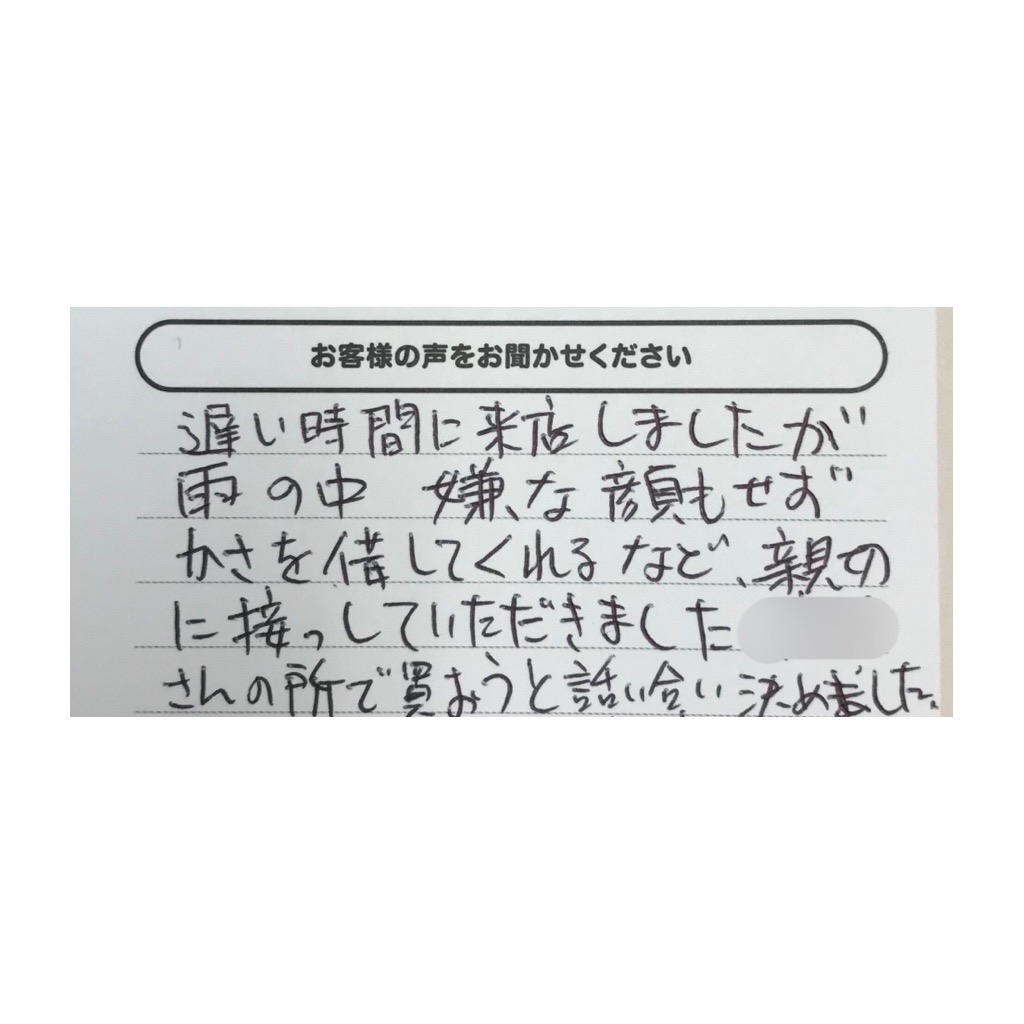 お客様の声をお聞かせください
遅い時間に来店しましたが
雨の中 嫌な顔もせず
かさを借してくれるなど、親切
に接っしていただきました
さんの所で買おうと話い合い決めました。